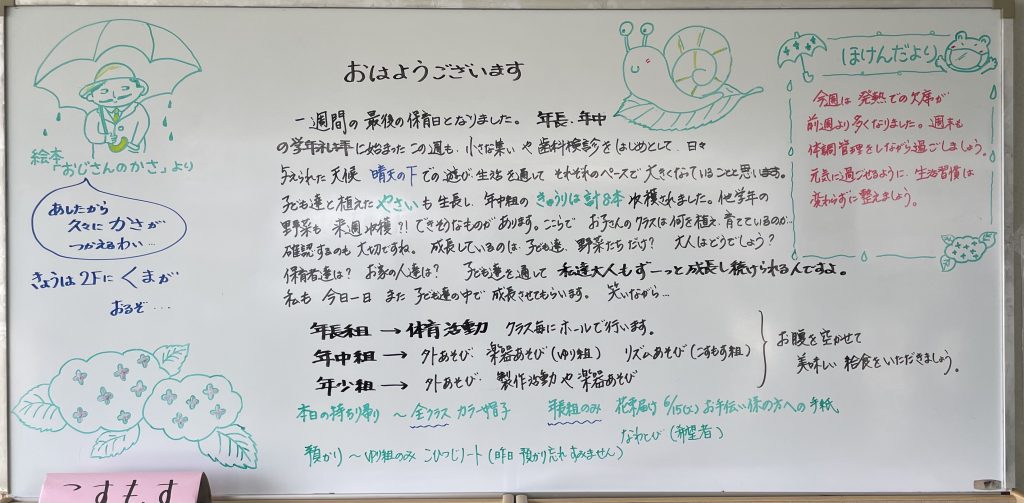 おはようございます
一週間の最後の保育日となりました。 年長・年中
の学年礼拝に始まったこの週も、小さな集いや歯科検診をはじめとして、日々
与えられた天候 晴天の下での遊び・生活を通して それぞれのペースで大きくなっていることと思います。
子ども達と植えたやさいも生長し、年中組のきゅうりは計8本収穫されました。他学年の
野菜も来週収穫?!できそうなものがあります。ここらで お子さんのクラスは何を植え、育てているのか…
確認するのも大切ですね。 成長しているのは、子ども達、野菜たちだけ? 大人はどうでしょう?
保育者達は? お家の人達は? 子ども達を通して 私達大人もずーっと成長し続けられる人ですよ。
私も 今日一日 また 子ども達の中で 成長させてもらいます。 笑いながら…
年長組 → 体育活動 クラス毎にホールで行います。
年中組 → 外あそび・楽器あそび(ゆり組) リズムあそび(こすもす組)
年少組 → 外あそび・製作活動や楽器あそび
お腹を空かせて
美味しい給食をいただきましょう。
本日の持ち帰り 〜 全クラス カラー帽子 年長組のみ 花束届け 6/15(火) お手伝い係の方への手紙
なわとび(希望者)
預かり 〜 ゆり組のみ こひつじノート (昨日 預かり忘れ すみません)
絵本「おじさんのかさ」より
あしたから
久々に かさが
つかえるわい…
きょうは2Fに くまが
おるぞ…
ほけんだより
今週は 発熱での欠席が
前週より多くなりました。週末も
体調管理をしながら過ごしましょう。
元気に過ごせるように 生活習慣は
変わらずに整えましょう。
こすもす